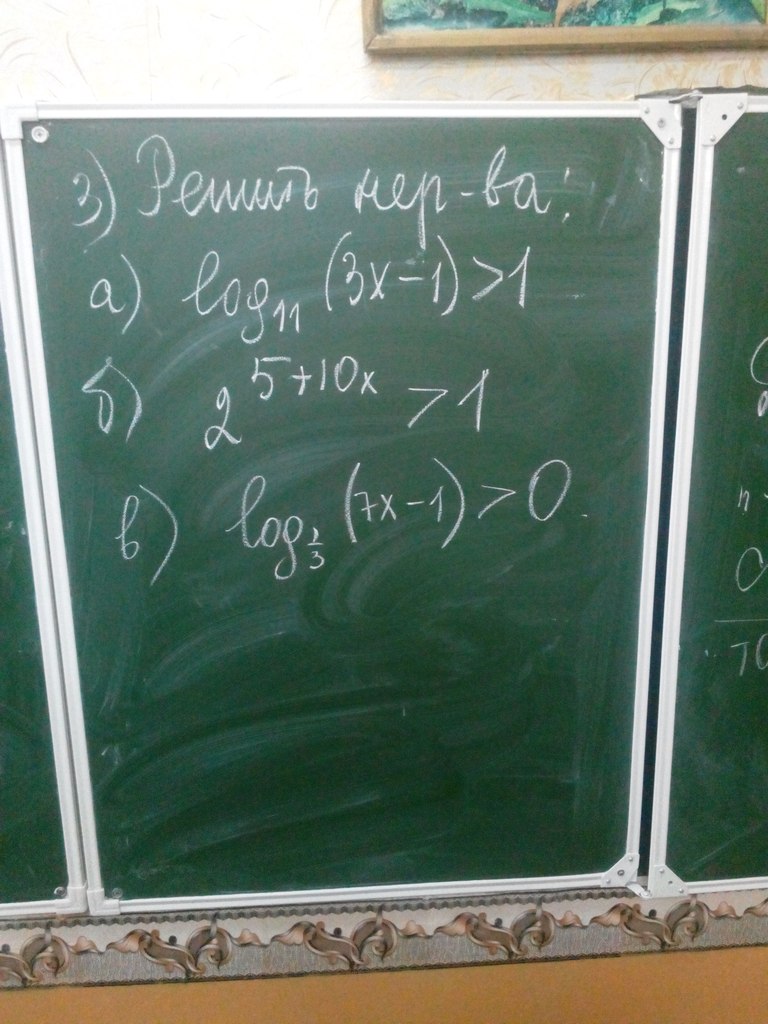 3) Решить нер-ва:
а) log₁₁ (3x-1)>1
б) 2^{5+10x} >1
в) log_{2/3} (7x-1)>0.